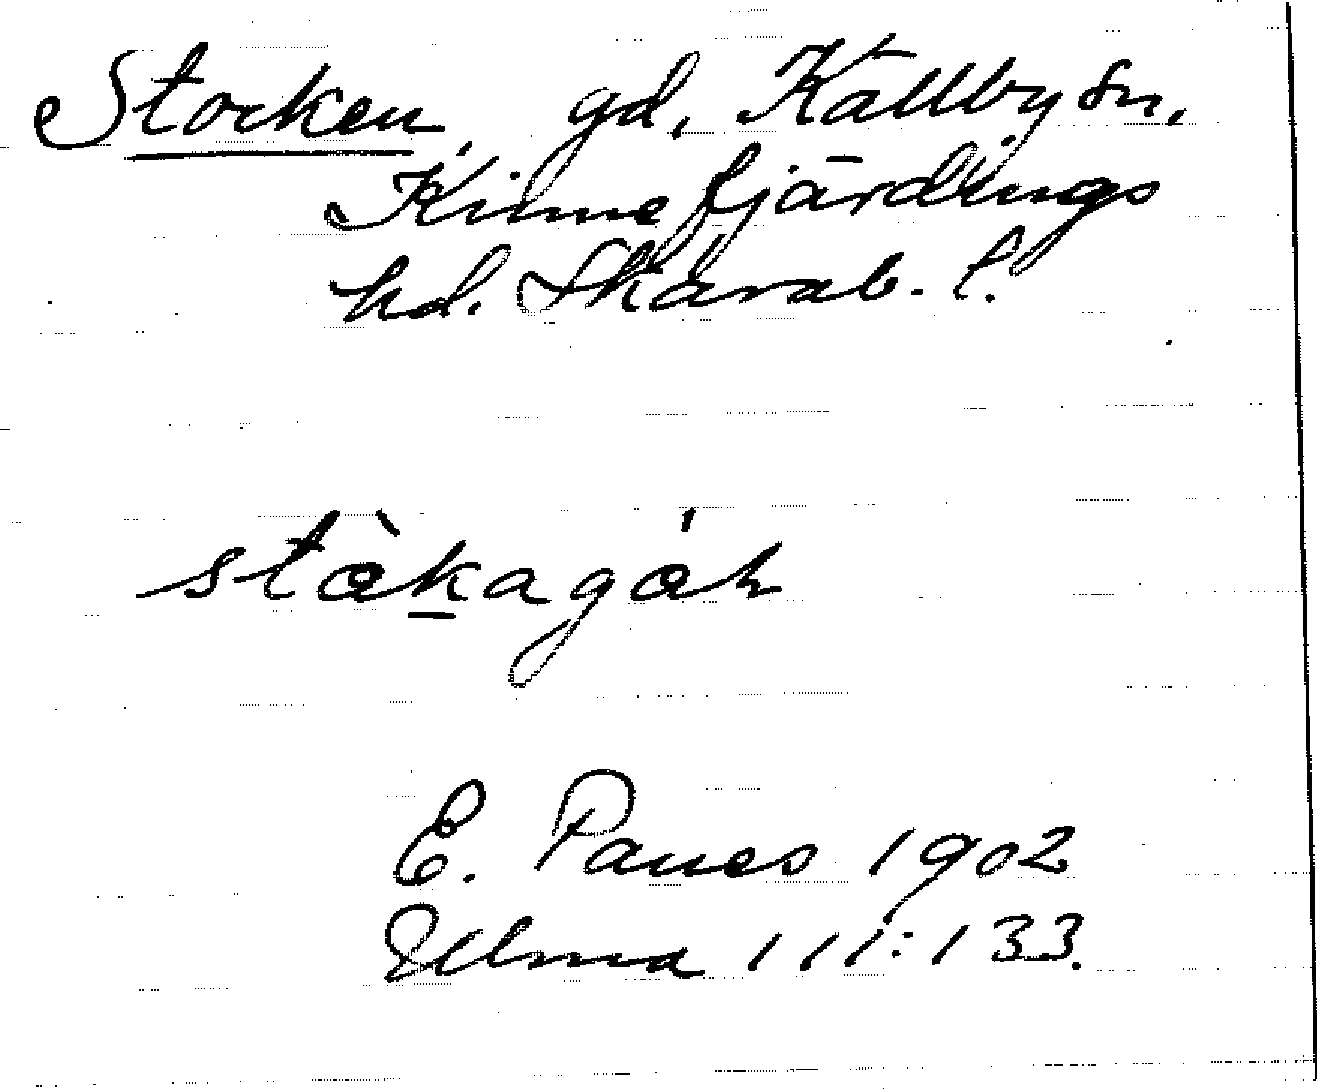 Stocken, gd, Källby sn,
Kinnefjärdings
hd. Skarab. l.
stòkagáh
E. Panes 1902
Ulma 111:133.